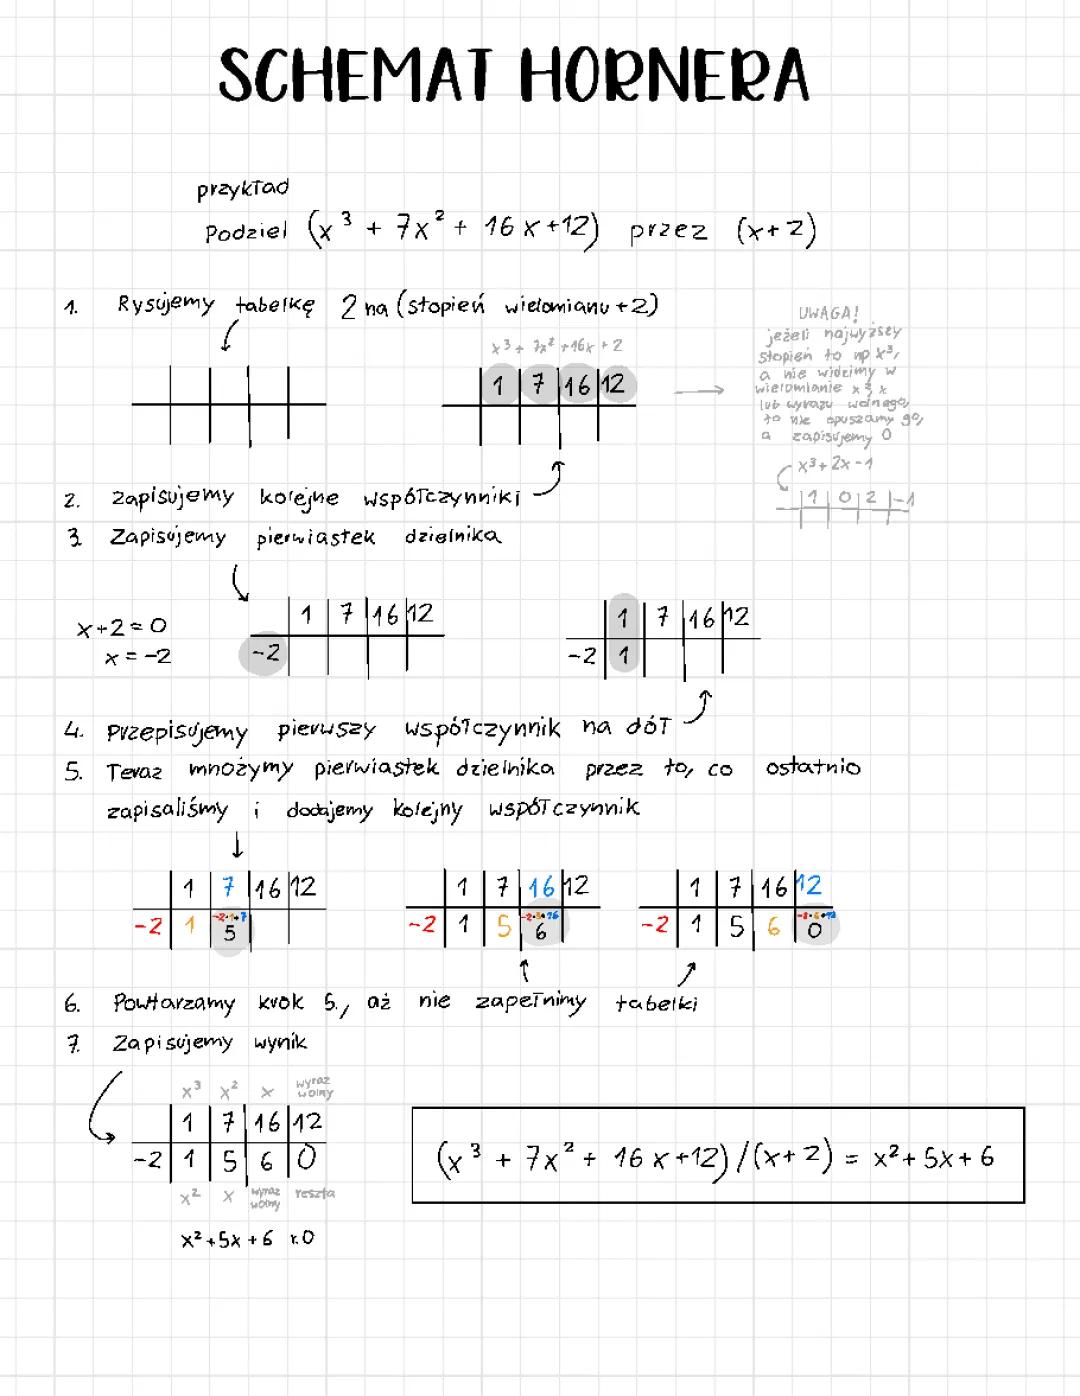 SCHEMAT HORNERA
przykład
Podziel (x³ + 7x² + 16x+12) przez (x+2)
1. Rysujemy tabelkę 2 na (stopień wielomianu +2)
x³+ 7x² +16x +2
1 7 16 12
UWAGA!
jeżeli najwyższy
stopień to np x³,
a nie widzimy w
wielomianie x², x
lub wyrazu wolnego,
to nie opuszamy go,
a zapisujemy 0
x³+2x-1
1 0 2 -1
2. Zapisujemy kolejne współczynniki
3 Zapisujemy pierwiastek dzielnika
x+2=0
x=-2
1 7 16 12
-2
1 7 16 12
-2 1
4. Przepisujemy pierwszy współczynnik na dół
5. Teraz mnożymy pierwiastek dzielnika przez to, co ostatnio
zapisaliśmy i dodajemy kolejny współczynnik
1 7 16 12
-2 1 -2·1+7
5
1 7 16 12
-2 1 5 -2·5+16
6
1 7 16 12
-2 1 5 6 -2·6+12
0
6. Powtarzamy krok 5., aż nie zapełnimy tabelki
7. Zapisujemy wynik
x³ x² x wyraz
wolny
1 7 16 12
-2 1 5 6 0
x² x wyraz reszta
wolny
x²+5x+6 r.0
(x³ + 7x² + 16x+12)/(x+2) = x²+5x+6